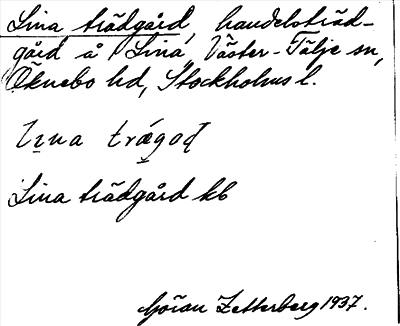 Lina trädgård, handelsträd-
gård å Lina, Väster-Tälje sn,
Öknebo hd, Stockholms l.
Lina trädgård kb
Göran Zetterberg 1937.